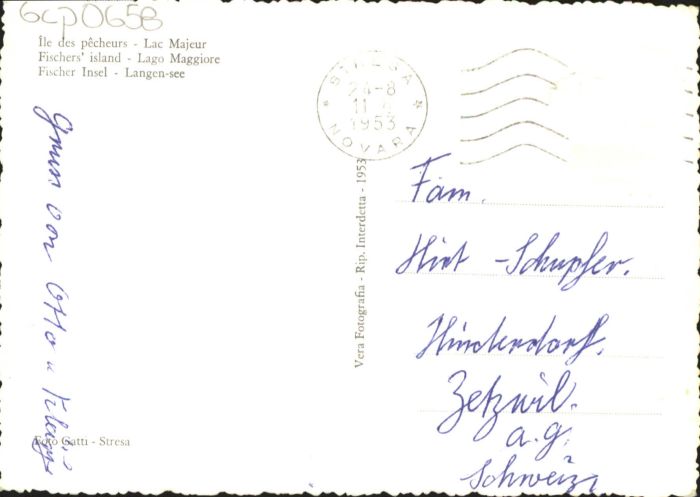 6cp065B
Île des pêcheurs - Lac Majeur
Fischers' island - Lago Maggiore
Fischer Insel - Langen-see
STRESA
24-8
11
1953
NOVARA
Vera Fotografia - Rip. Interdetta - 1953
Fam.
Hirt - Schupfer.
Hinterdorf.
Zetzwil.
a.g.
Schweiz
von Otto u
Foto Gatti - Stresa